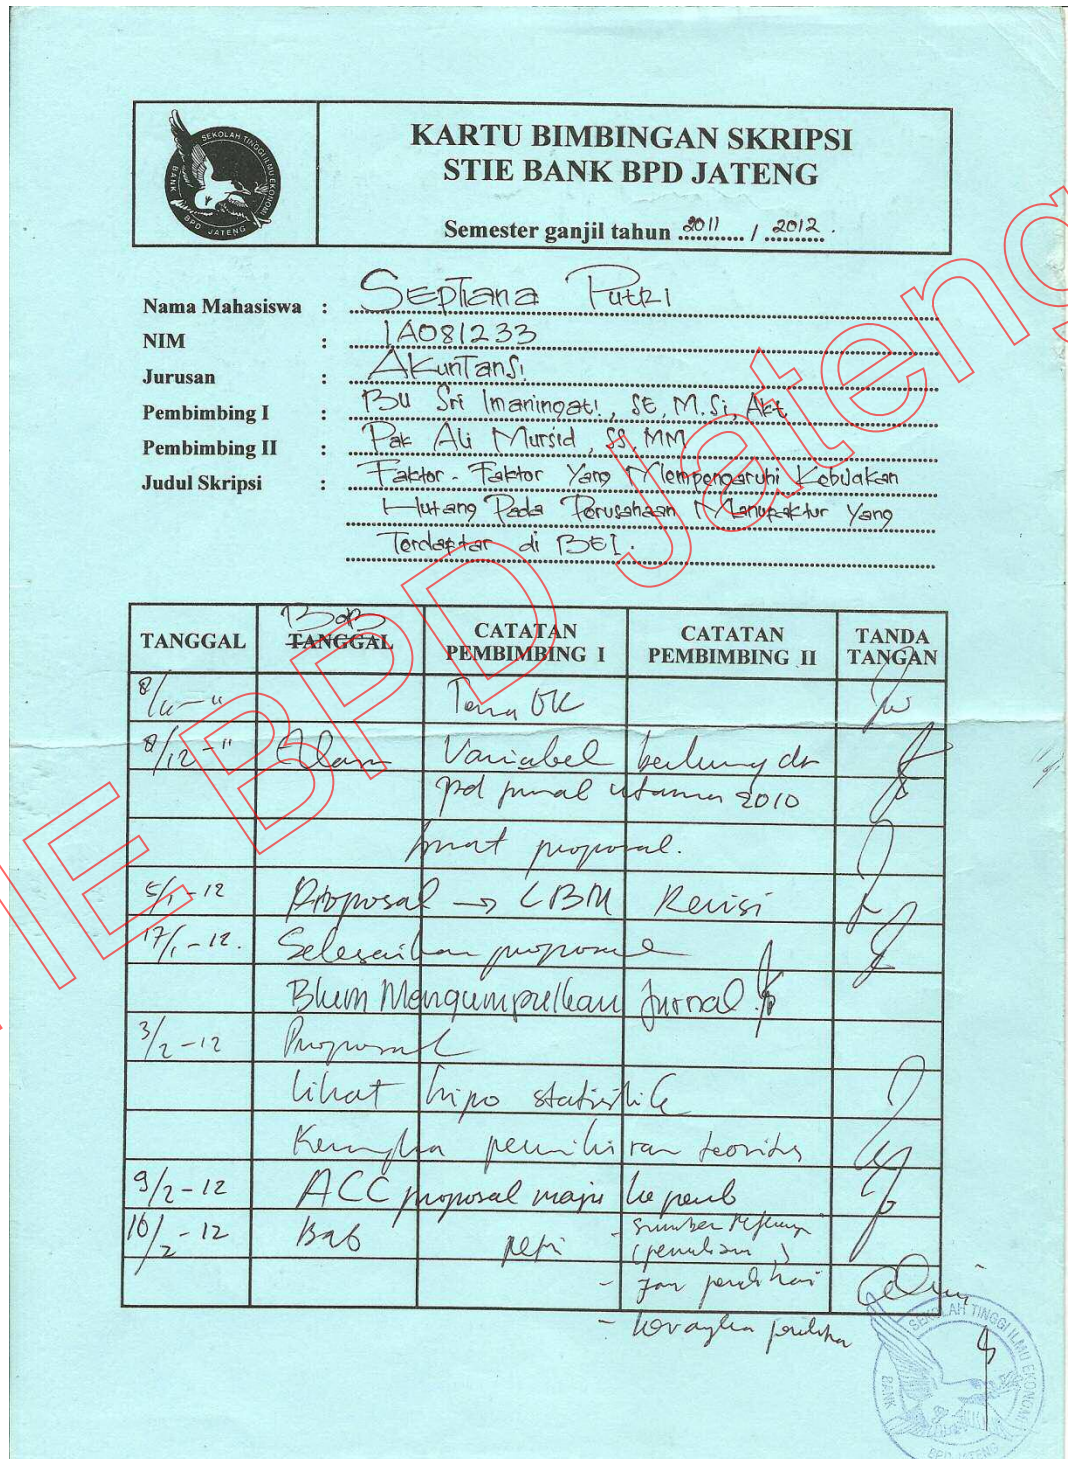 SEKOLAH TINGGI ILMU EKONOMI
BANK BPD JATENG
KARTU BIMBINGAN SKRIPSI
STIE BANK BPD JATENG
Semester ganjil tahun 2011 / 2012.
Nama Mahasiswa : Septiana Putri
NIM : 1A081233
Jurusan : Akuntansi
Pembimbing I : Bu Sri Imaningati, SE, M.Si, Akt
Pembimbing II : Pak Ali Mursid, SS, MM
Judul Skripsi : Faktor-Faktor Yang Mempengaruhi Kebijakan
Hutang Pada Perusahaan Manufaktur Yang
Terdaftar di BEI.
Bab
TANGGAL TANGGAL CATATAN PEMBIMBING I CATATAN PEMBIMBING II TANDA TANGAN
OK
8/12-" Variabel
pd jurnal utama 2010
buat proposal.
5/1-12 Proposal → LBM Revisi
17/1-12. Selesaikan proposal
Blum Mengumpulkan Jurnal
3/2-12 Proposal
lihat hipo statistik
Kerangka pemikiran teoritis
9/2-12 ACC proposal maju ke
16/2-12 Bab - Sumber
-
- kerangka
SEKOLAH TINGGI ILMU EKONOMI
BANK BPD JATENG
IE BPD Jateng